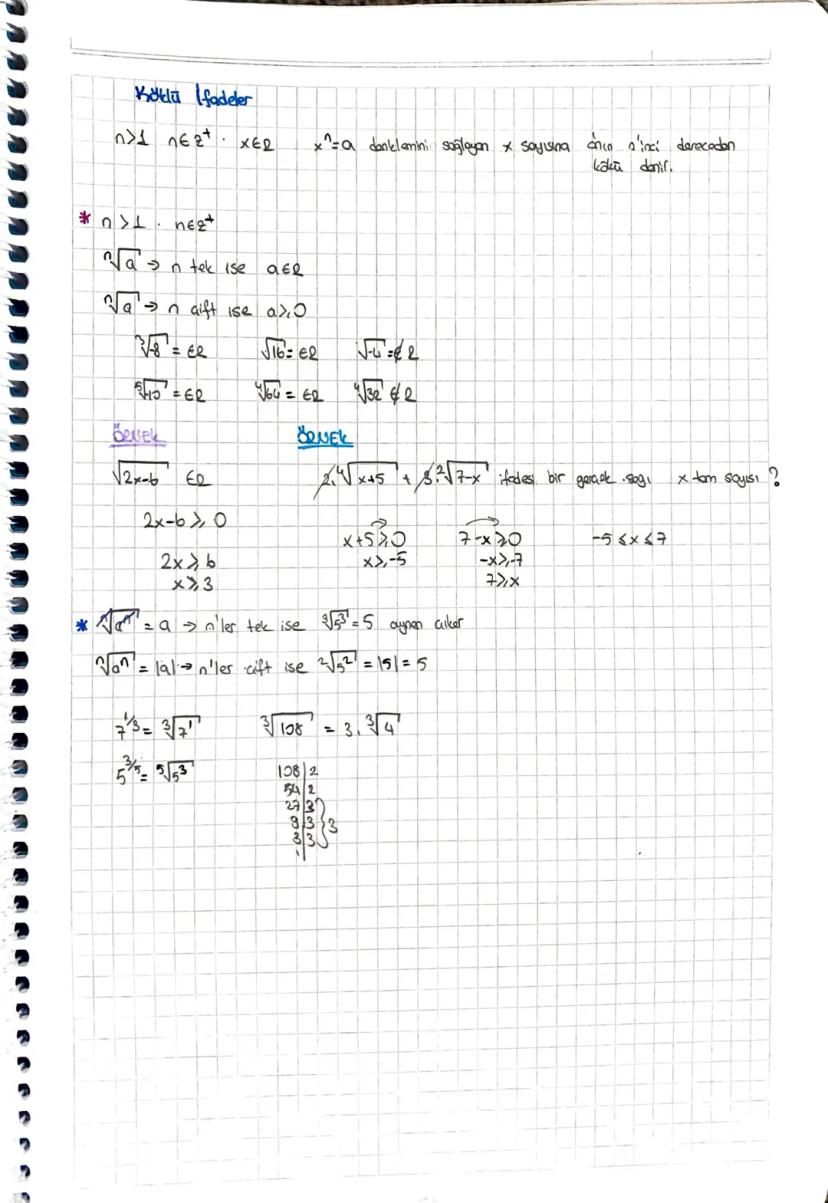 Köklü İfadeler
n>1 n∈Z⁺ . x∈R xⁿ=a denklemini sağlayan x sayısına a'nın n'inci dereceden
kökü denir.
* n>1 . n∈Z⁺
ⁿ√a → n tek ise a∈R
ⁿ√a → n çift ise a≥0
³√-8 = ∈R √16 = ∈R √-4 = ∉R
⁵√-10 = ∈R ⁴√64 = ∈R ⁴√32 ∉R
ÖRNEK ÖRNEK
√2x-6 ∈R 2.⁴√x+5 + 3.²√7-x ifadesi bir gerçek sayı x tam sayısı ?
2x-6≥0 x+5≥0 7-x≥0 -5≤x≤7
2x≥6 x≥-5 -x≥-7
x≥3 7≥x
* ⁿ√aⁿ = a → n'ler tek ise ³√5³ = 5 aynen çıkar
ⁿ√aⁿ = |a| → n'ler çift ise ²√5² = |5| = 5
7^1/3 = ³√7¹ ³√108 = 3.³√4
5^3/5 = ⁵√5³ 108|2
54|2
27|3
9|3 } 3
3|3
1